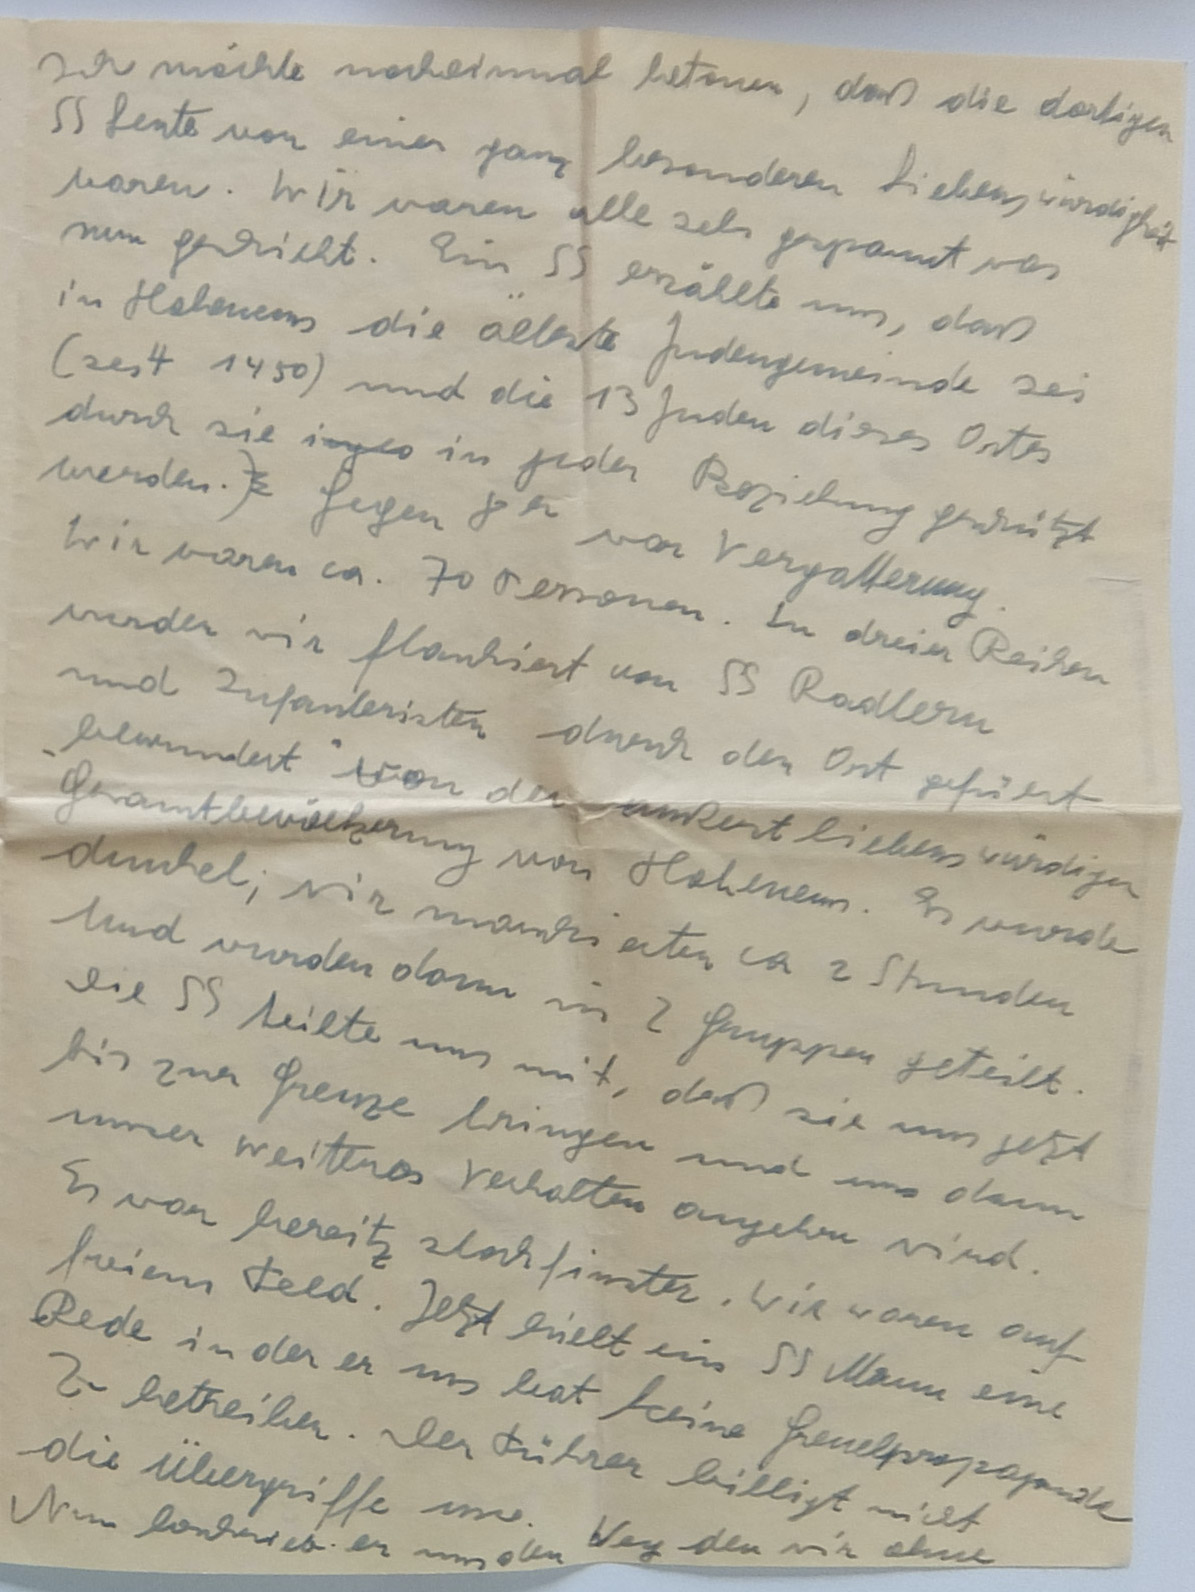 Ich möchte nocheinmal betonen, daß die dortigen
SS Leute von einer ganz besonderen Liebenswürdigkeit
waren. Wir waren alle sehr gespannt was
nun geschieht. Ein SS erzählte uns, daß
in Hohenems die älteste Judengemeinde sei
(seit 1450) und die 13 Juden dieses Ortes
durch sie in jeder Beziehung geschützt
werden. Gegen 8h war Vergatterung.
Wir waren ca. 70 Personen. In dreier Reihen
wurden wir flankiert von SS Radlern
und Infanteristen durch den Ort gefürt
„bewundert" von der äußerst liebenswürdigen
Gesamtbevölkerung von Hohenems. Es wurde
dunkel; wir marschierten ca 2 Stunden
und wurden dann in 2 Gruppen geteilt.
Die SS teilte uns mit, daß sie uns jetzt
bis zur Grenze bringen und uns dann
unser weiteres Verhalten angeben wird.
Es war bereitz stockfinster. Wir waren auf
freiem Feld. Jetzt hielt ein SS Mann eine
Rede in der er uns bat keine Greuelpropaganda
zu betreiben. Der Führer billigt nicht
die Übergriffe usw.
Nun beschrieb er uns den Weg den wir ohne